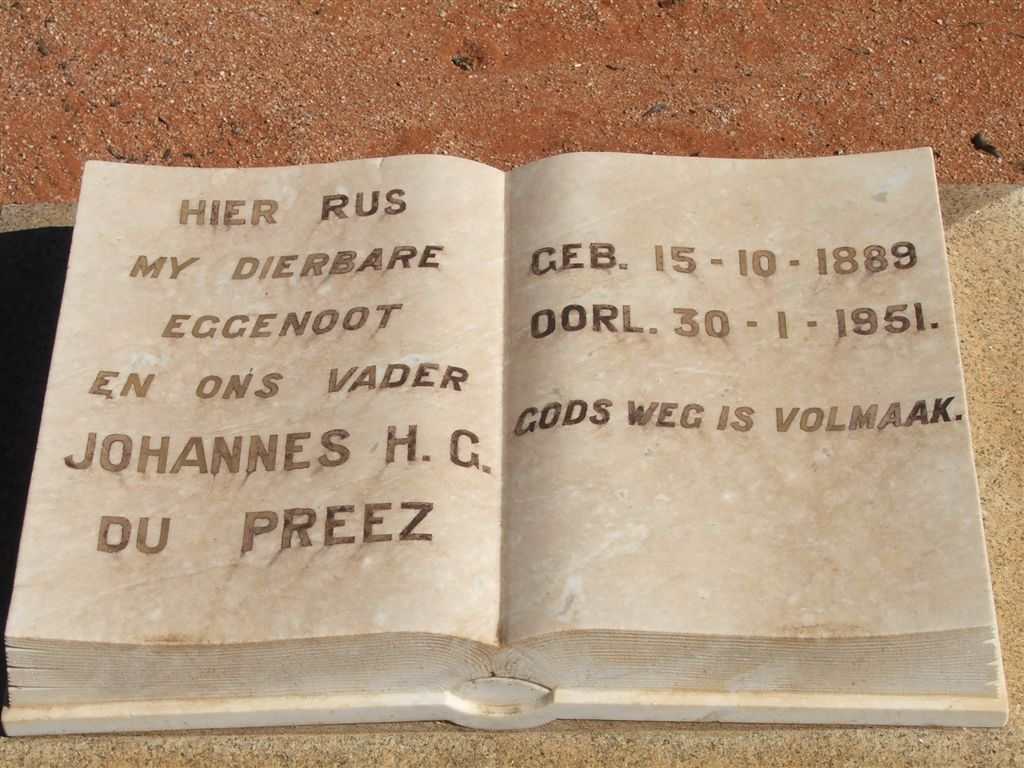 HIER RUS
MY DIERBARE
EGGENOOT
EN ONS VADER
JOHANNES H. G.
DU PREEZ
GEB. 15-10-1889
OORL. 30-1-1951.
GODS WEG IS VOLMAAK.